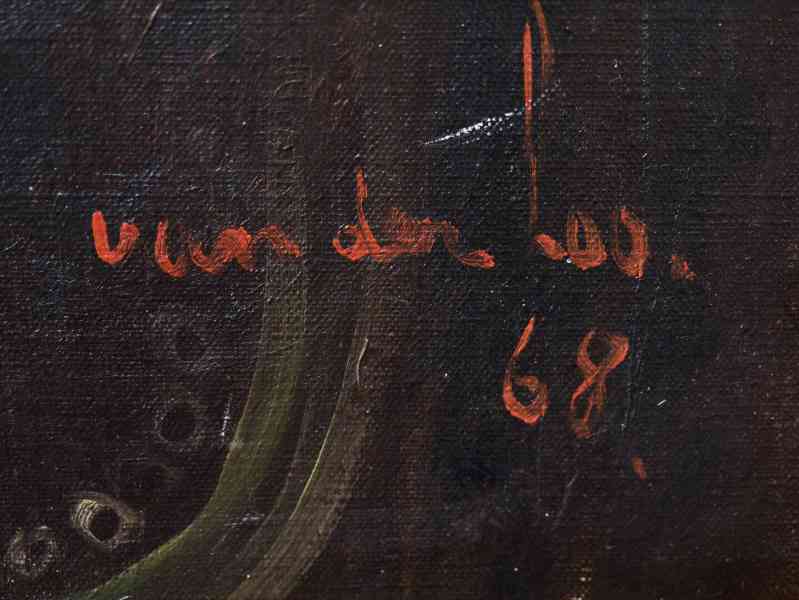 van der loo.
68.